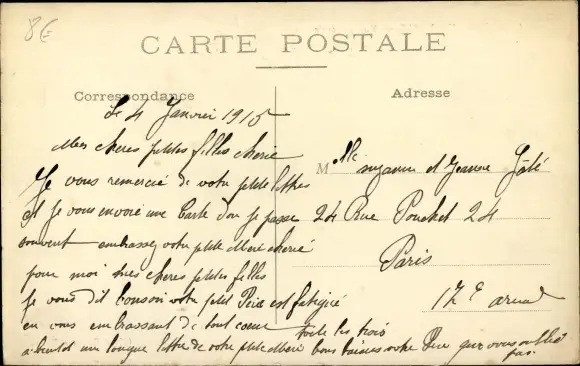 8€
CARTE POSTALE
Correspondance
Adresse
Le 4 Janvier 1915
Mes cheres petites filles cherie
Je vous remercie de votre petite lettres
Et Je vous envoie une Carte d'ou Je passe
souvent embrassez votre petite Mere cherie
pour moi mes cheres petites filles
Je vous dit bonsoir votre petit Pere est fatigué
en vous embrassant de tout coeur toute les trois
a bientot une longue lettre de votre petite Mere bons baisers votre Pere qui vous oublie
pas
M Mlle Suzanne et Jeanne
24 Rue Pouchet 24
Paris
17e